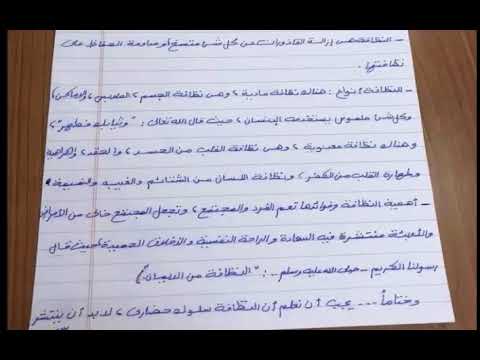 - النظافة هى إزالة القاذورات من كل شئ متسخ أو مداومة الحفاظ على
نظافتها .
- النظافة أنواع : هناك نظافة مادية ، وهى نظافة الجسم ، الملابس ، والأماكن
وكل شئ ملموس يستخدمه الإنسان ، حيث قال الله تعالى : " وثيابك فطهر " ،
وهناك نظافة معنوية ، وهى نظافة القلب من الحسد ، والحقد ، والكراهية
وطهارة القلب من الكفر ، ونظافة اللسان من الشتائم والغيبة والنميمة
- أهمية النظافة وفوائدها تعم الفرد والمجتمع ، وتجعل المجتمع خالى من الأمراض
والأوبئة منتشرة فيه السعادة والراحة النفسية والأخلاق الحميدة ، حيث قال
رسولنا الكريم - صلى الله عليه وسلم - : " النظافة من الايمان "
وختاماً --- يجب أن نعلم أن النظافة سلوك حضارى ، لابد أن ينتشر